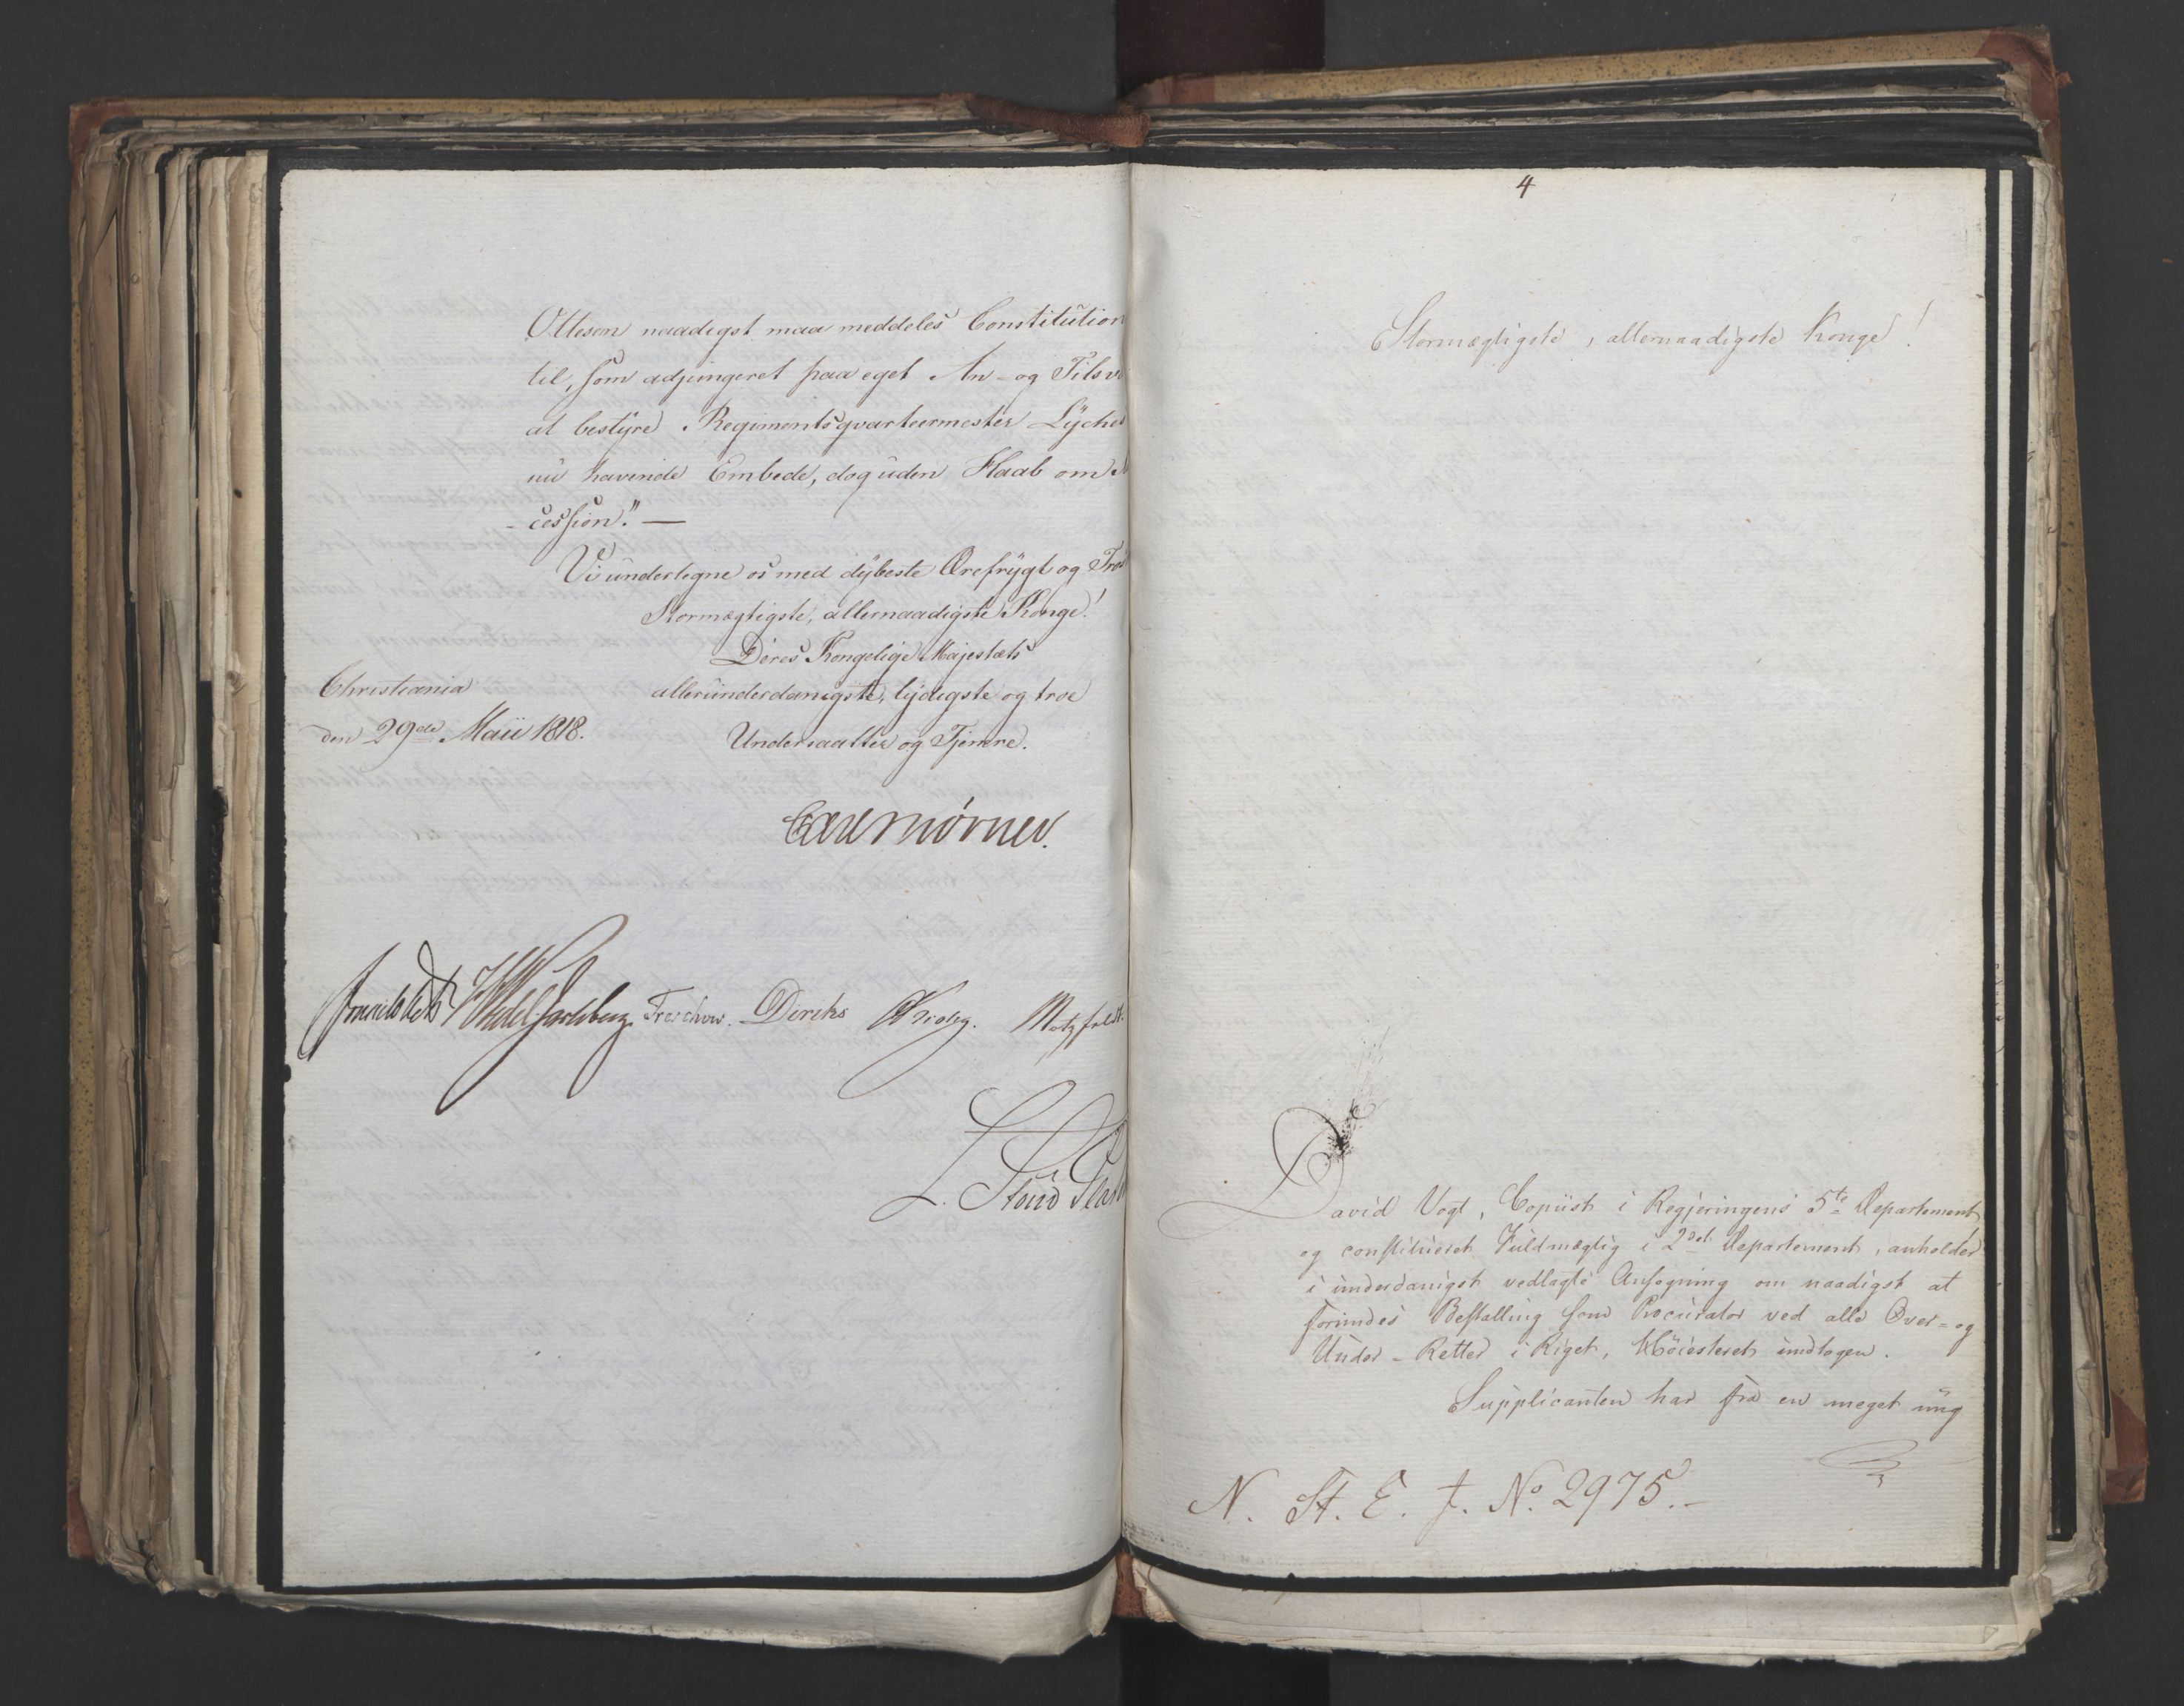 Ottesen naadigst maa meddeles Constitution
til, som adjungeret paa eget An- og Tilsv
at bestÿre Regimentsqvarteermester Lÿche
nu havende Embede, dog uden Haab om
-cession." —
Vi undertegne os med dÿbeste Ærefrÿgt og Tro
Stormægtigste, allernaadigste Konge!
Deres Kongelige Majestæts
Christiania
allerunderdanigste, lÿdigste og troe
den 29de Maii 1818.
Undersaatter og Tjenere.
Carl Mörner.
Sommerhielm HWedel Jarlsberg. Treschow. Diriks Krog. Motzfeldt.
L. Stoud Plat
4
Stormægtigste, allernaadigste Konge!
David Vogt, Copiist i Regjeringens 5te Departement
og constitueret Fuldmægtig i 2det Departement, anholder
i underdanigst vedlagte Ansøgning om naadigst at
forundes Bestalling som Procurator ved alle Over- og
Under-Retter i Riget, Höiesteret undtagen.
Supplicanten har fra en meget ung
N. St. E. J. No. 2975.-